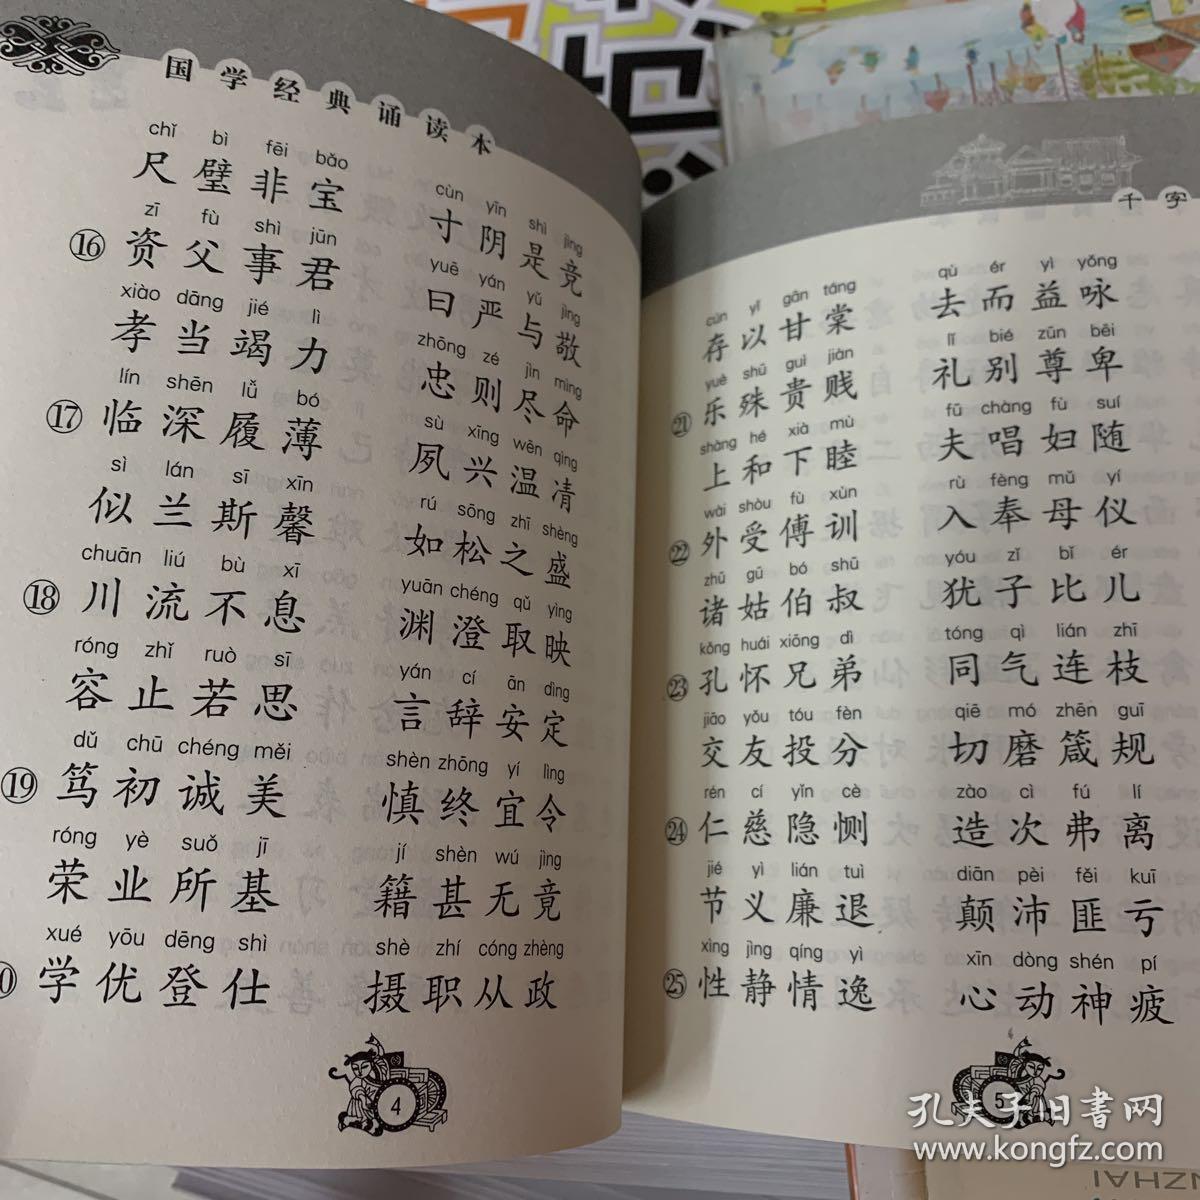 国学经典诵读本
chǐ bì fēi bǎo cùn yīn shì jìng
尺璧非宝 寸阴是竞
zī fù shì jūn yuē yán yǔ jìng
⑯ 资父事君 曰严与敬
xiào dāng jié lì zhōng zé jìn mìng
孝当竭力 忠则尽命
lín shēn lǚ bó sù xīng wēn qìng
⑰ 临深履薄 夙兴温凊
sì lán sī xīn rú sōng zhī shèng
似兰斯馨 如松之盛
chuān liú bù xī yuān chéng qǔ yìng
⑱ 川流不息 渊澄取映
róng zhǐ ruò sī yán cí ān dìng
容止若思 言辞安定
dǔ chū chéng měi shèn zhōng yí lìng
⑲ 笃初诚美 慎终宜令
róng yè suǒ jī jí shèn wú jìng
荣业所基 籍甚无竟
xué yōu dēng shì shè zhí cóng zhèng
0 学优登仕 摄职从政
4
千字
cún yǐ gān táng qù ér yì yǒng
存以甘棠 去而益咏
yuè shū guì jiàn lǐ bié zūn bēi
㉑ 乐殊贵贱 礼别尊卑
shàng hé xià mù fū chàng fù suí
上和下睦 夫唱妇随
wài shòu fù xùn rù fèng mǔ yí
㉒ 外受傅训 入奉母仪
zhū gū bó shū yóu zǐ bǐ ér
诸姑伯叔 犹子比儿
kǒng huái xiōng dì tóng qì lián zhī
㉓ 孔怀兄弟 同气连枝
jiāo yǒu tóu fèn qiē mó zhēn guī
交友投分 切磨箴规
rén cí yǐn cè zào cì fú lí
㉔ 仁慈隐恻 造次弗离
jié yì lián tuì diān pèi fěi kuī
节义廉退 颠沛匪亏
xìng jìng qíng yì xīn dòng shén pí
㉕ 性静情逸 心动神疲
5
孔夫子旧书网
www.kongfz.com